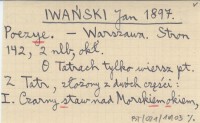 IWAŃSKI Jan 1897.
Poezye. – Warszawa. Stron
142, 2 nlb, okł.
O Tatrach tylko wiersz pt.
Z Tatr, złożony z dwóch części:
I. Czarny staw nad Morskiem okiem,